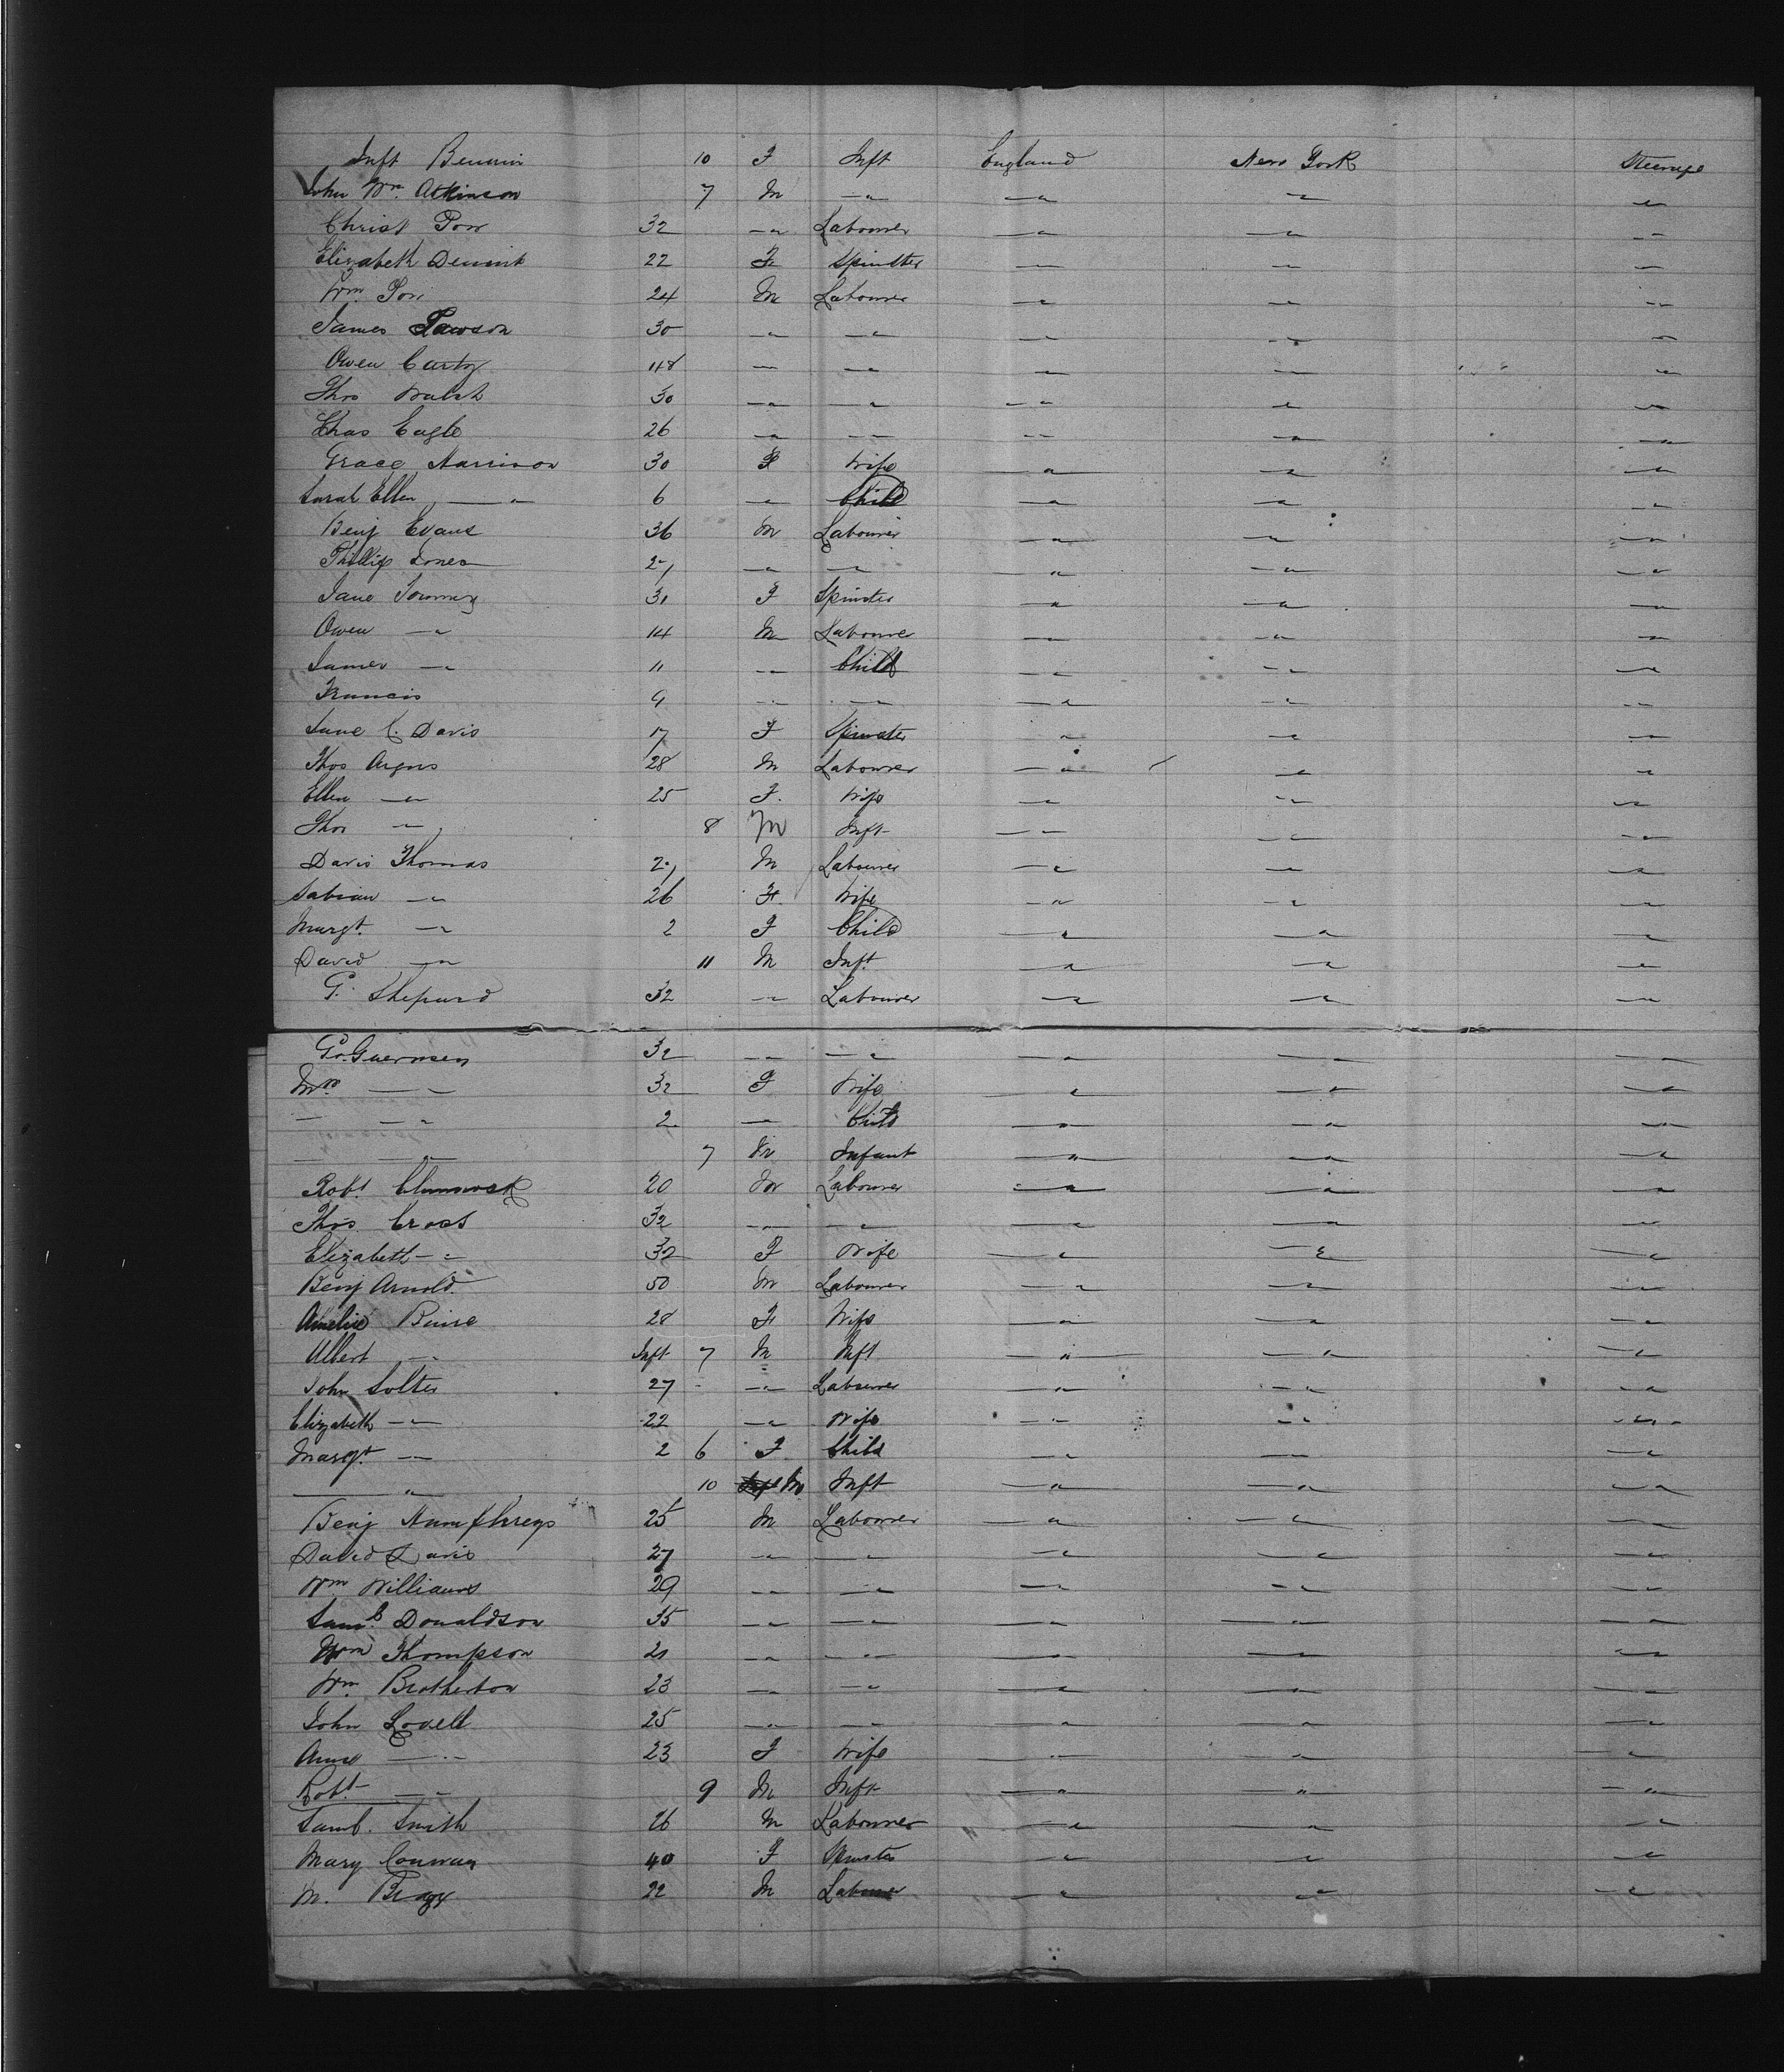 Inft 10 F Inft England New York Steerage
John Wm. Atkinson 7 M —〃 —〃 —〃 —〃
Christ 32 —〃 Labourer —〃 —〃 —〃
Elizabeth 22 F Spinster — —〃 —
Wm 24 M Labourer —〃 —〃 —〃
James Lawson 30 —〃 —〃 —〃 —〃 —〃
Owen Carty 48 —〃 —〃 —〃 —〃 —〃
Thos Walsh 30 —〃 —〃 —〃 —〃 —〃
Chas Eagle 26 —〃 —〃 —〃 —〃 —〃
Grace Harrison 30 F Wife —〃 —〃 —〃
Sarah Ellen —〃 6 —〃 Child —〃 —〃 —〃
Benj Evans 36 M Labourer —〃 —〃 —〃
Phillip Jones 27 —〃 —〃 —〃 —〃 —〃
Jane 31 F Spinster —〃 —〃 —〃
Owen —〃 14 M Labourer —〃 —〃 —〃
James —〃 11 —〃 Child —〃 —〃 —〃
Francis 9 —〃 —〃 —〃 —〃 —〃
Jane C. Davis 17 F Spinster —〃 —〃 —〃
Thos Angus 28 M Labourer —〃 —〃 —〃
Ellen —〃 25 F. Wife —〃 —〃 —〃
Thos —〃 8 M Inft —〃 —〃 —〃
Davis Thomas 27 M Labourer —〃 —〃 —〃
—〃 26 F. Wife —〃 —〃 —〃
Margt. —〃 2 F Child —〃 —〃 —〃
David —〃 11 M Inft —〃 —〃 —〃
G. Shepard 32 —〃 Labourer —〃 —〃 —〃
Go. Guernsey 32 —〃 —〃 —〃 —〃 —〃
Mrs. —〃 32 F Wife —〃 —〃 —〃
— —〃 2 —〃 Child —〃 —〃 —〃
— —〃 7 M Infant —〃 —〃 —〃
Robt. 20 M Labourer —〃 —〃 —〃
Thos. Cross 32 —〃 —〃 —〃 —〃 —〃
Elizabeth —〃 32 F Wife —〃 —〃 —〃
Benj Arnold 50 M Labourer —〃 —〃 —〃
Amelia 28 F Wife —〃 —〃 —〃
Albert —〃 Inft 7 M Inft —〃 —〃 —〃
John Solter 27 —〃 Labourer —〃 —〃 —〃
Elizabeth —〃 22 —〃 Wife —〃 —〃 —〃
Margt. —〃 2 6 F Child —〃 —〃 —〃
—〃 10 M Inft —〃 —〃 —〃
Benj Humphreys 25 M Labourer —〃 —〃 —〃
David Davis 27 —〃 —〃 —〃 —〃 —〃
Wm Williams 29 —〃 —〃 —〃 —〃 —〃
Saml. Donaldson 35 —〃 —〃 —〃 —〃 —〃
Wm Thompson 21 —〃 —〃 —〃 —〃 —〃
Wm. Brotherton 23 —〃 —〃 —〃 —〃 —〃
John Lovell 25 —〃 —〃 —〃 —〃 —〃
Anne —〃 23 F Wife —〃 —〃 —〃
Robt —〃 9 M Inft —〃 —〃 —〃
Saml. Smith 26 M Labourer —〃 —〃 —〃
Mary Conway 40 F Spinster —〃 —〃 —〃
M. 22 M Labourer —〃 —〃 —〃